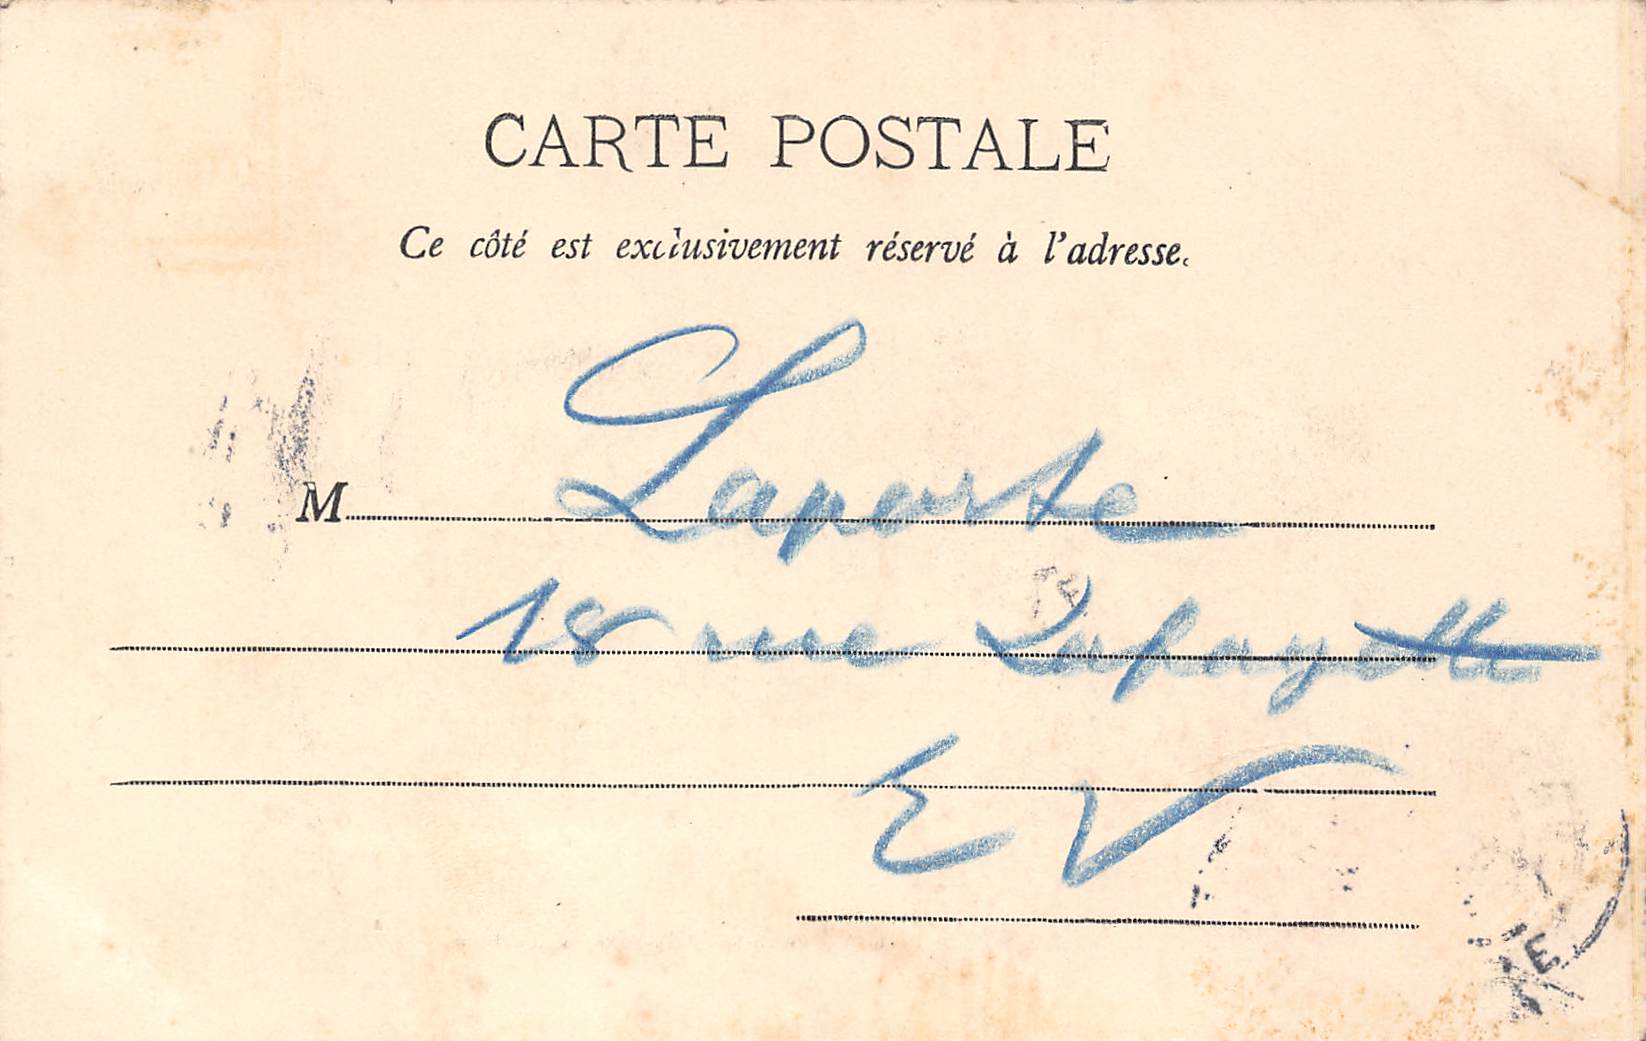 CARTE POSTALE
Ce côté est exclusivement réservé à l'adresse.
M Laporte
18 rue Lafayette
E V